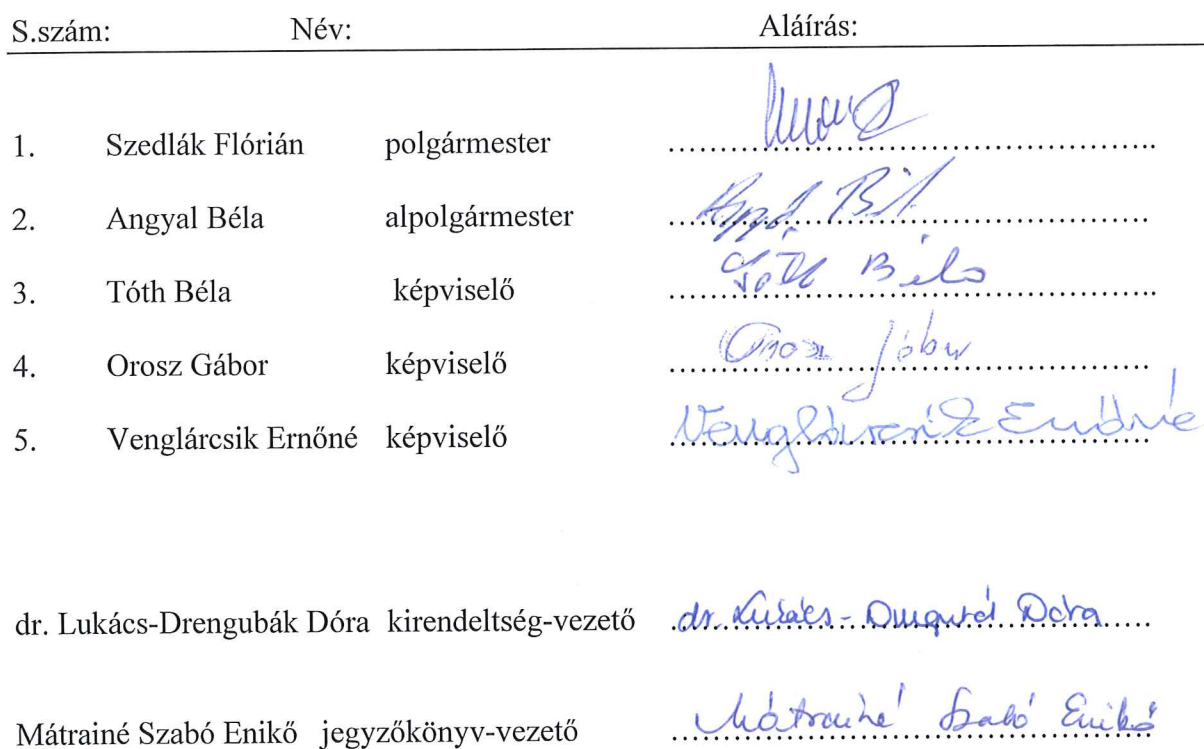 S.szám: Név: Aláírás:
1. Szedlák Flórián polgármester ........................
2. Angyal Béla alpolgármester ........................
3. Tóth Béla képviselő ........................ Tóth Béla
4. Orosz Gábor képviselő ........................ Orosz Gábor
5. Venglárcsik Ernőné képviselő ........................ Venglárcsik Ernőné
dr. Lukács-Drengubák Dóra kirendeltség-vezető dr. Lukács- Dóra
Mátrainé Szabó Enikő jegyzőkönyv-vezető Mátrainé Szabó Enikő